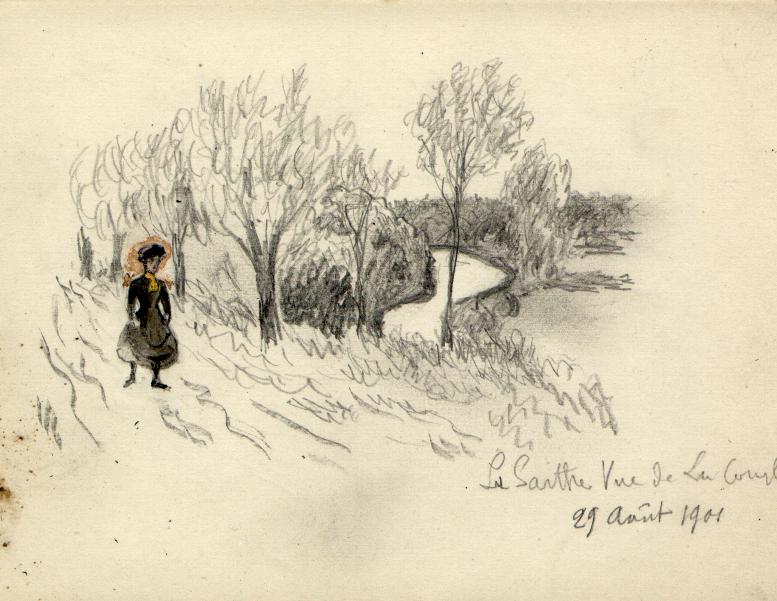 La Sarthe Vue de La
29 Août 1901